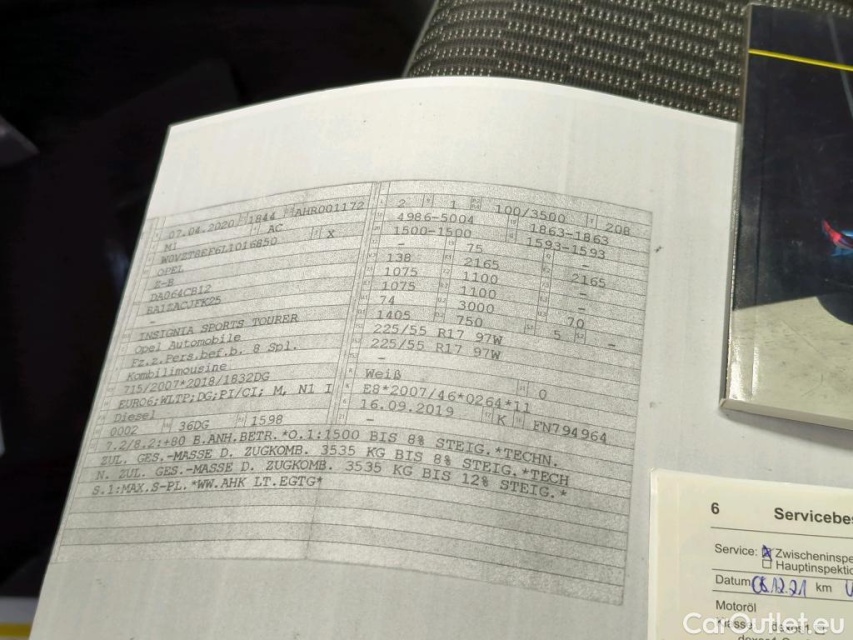 07.04.2020 1844 AHR001172
M1 AC
W0VZT8EF6L1016850 X
OPEL
Z-B
DA064CB12
EA1ZACJFK25
-
INSIGNIA SPORTS TOURER
Opel Automobile
Fz.z.Pers.bef.b. 8 Spl.
Kombilimousine
715/2007*2018/1832DG
EURO6;WLTP;DG;PI/CI; M, N1 I
Diesel
0002 36DG 1598
2 1 100/3500 208
4986-5004 1863-1863
1500-1500 1593-1593
- 75 -
138 2165 2165
1075 1100 -
1075 1100
74 3000 70
1405 750 5 -
225/55 R17 97W
225/55 R17 97W
-
Weiß 0
E8*2007/46*0264*11
16.09.2019 K FN794964
-
7.2/8.2:+80 B.ANH.BETR.*O.1:1500 BIS 8% STEIG.*TECHN.
ZUL. GES.-MASSE D. ZUGKOMB. 3535 KG BIS 8% STEIG.*TECH
N. ZUL. GES.-MASSE D. ZUGKOMB. 3535 KG BIS 12% STEIG.*
S.1:MAX.S-PL.*WW.AHK LT.EGTG*
6 Servicebes
Service: Zwischeninspe
Hauptinspektio
Datum 08.12.21 km
Motoröl
dexos1
CarOutlet.eu